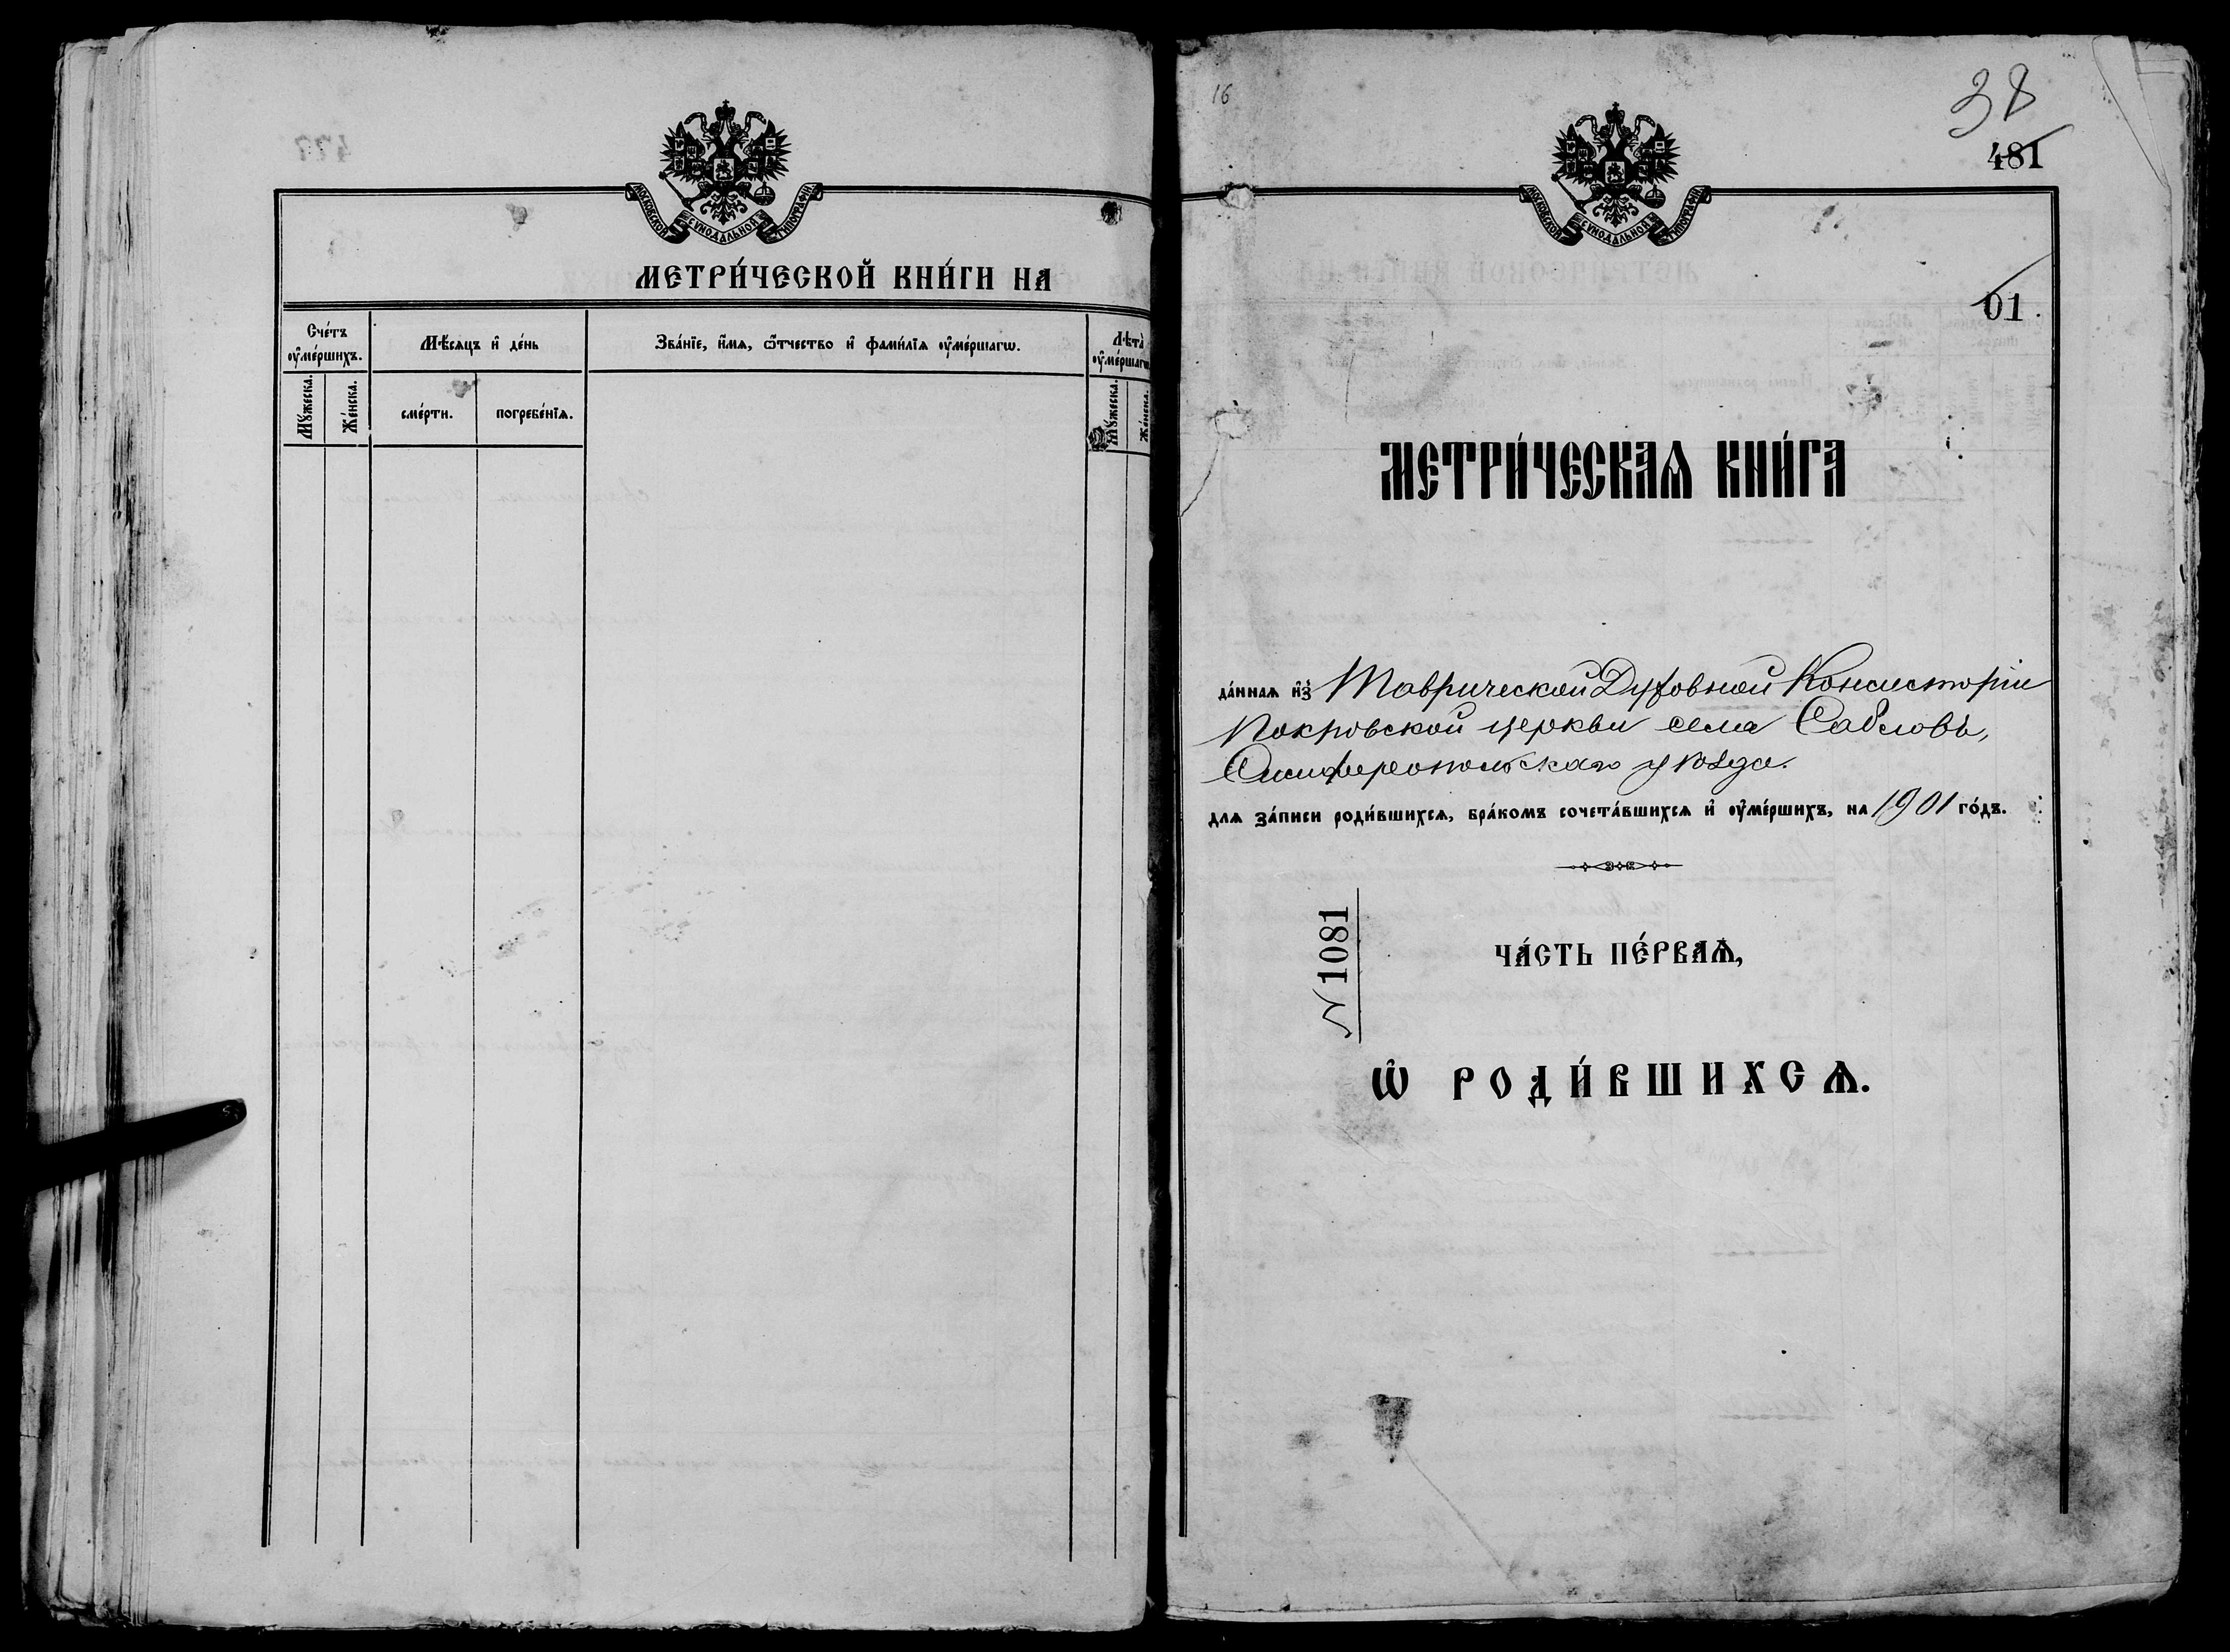 477
МОСКОВСКОЙ СѴНОДАЛЬНОЙ ТИПОГРАФІИ
МЕТРИ́ЧЕСКОЙ КНИ́ГИ НА
Сче́тъ ᲂу҆ме́ршихъ.
Мѣ́сяцъ и҆ де́нь
Зва́нїе, и҆́мѧ, ѻ҆́тчество и҆ фами́лїѧ ᲂу҆ме́ршагѡ.
Лѣ́та ᲂу҆ме́ршагѡ
Мꙋ́жеска.
Же́нска.
сме́рти.
погребе́нїѧ.
Мꙋ́жеска.
Же́нска.
16
38
481
МОСКОВСКОЙ СѴНОДАЛЬНОЙ ТИПОГРАФІИ
01.
МЕТРИ́ЧЕСКАѦ КНИ́ГА
да́ннаѧ и҆з̾ Таврической Духовной Консисторіи
Покровской церкви села Сабловъ,
Симферопольскаго уѣзда.
для за́писи роди́вшихсѧ, бра́комъ сочета́вшихсѧ и҆ ᲂу҆ме́ршихъ, на 1901 го́дъ.
№ 1081
ЧА́СТЬ ПЕ́РВАѦ,
Ѡ҆ РОДИ́ВШИХСѦ.